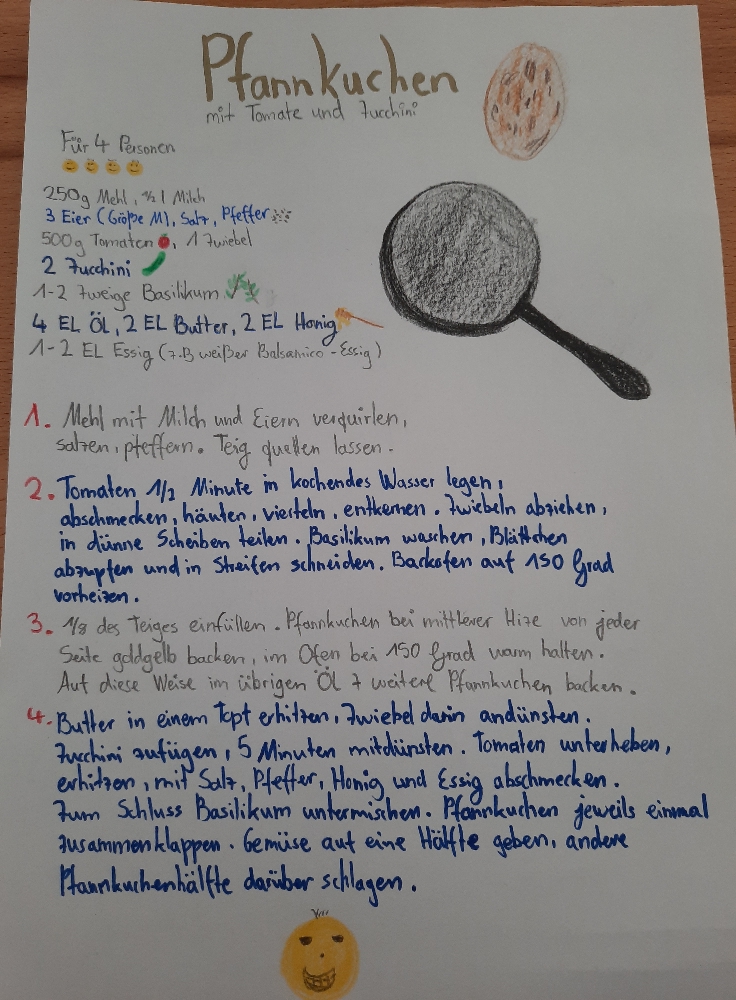 Pfannkuchen
mit Tomate und Zucchini
Für 4 Personen
250g Mehl, 1/2 l Milch
3 Eier (Größe M), Salz, Pfeffer
500g Tomaten, 1 Zwiebel
2 Zucchini
1-2 Zweige Basilikum
4 EL Öl, 2 EL Butter, 2 EL Honig
1-2 EL Essig (z.B weißer Balsamico-Essig)
1. Mehl mit Milch und Eiern verquirlen,
salzen, pfeffern. Teig quellen lassen.
2. Tomaten 1/2 Minute in kochendes Wasser legen,
abschmecken, häuten, vierteln, entkernen. Zwiebeln abziehen,
in dünne Scheiben teilen. Basilikum waschen, Blättchen
abzupfen und in Streifen schneiden. Backofen auf 150 Grad
vorheizen.
3. 1/8 des Teiges einfüllen. Pfannkuchen bei mittlerer Hize von jeder
Seite goldgelb backen, im Ofen bei 150 Grad warm halten.
Auf diese Weise im übrigen Öl 7 weitere Pfannkuchen backen.
4. Butter in einem Topf erhitzen, Zwiebel darin andünsten.
Zucchini zufügen, 5 Minuten mitdünsten. Tomaten unterheben,
erhitzen, mit Salz, Pfeffer, Honig und Essig abschmecken.
Zum Schluss Basilikum untermischen. Pfannkuchen jeweils einmal
zusammenklappen. Gemüse auf eine Hälfte geben, andere
Pfannkuchenhälfte darüber schlagen.